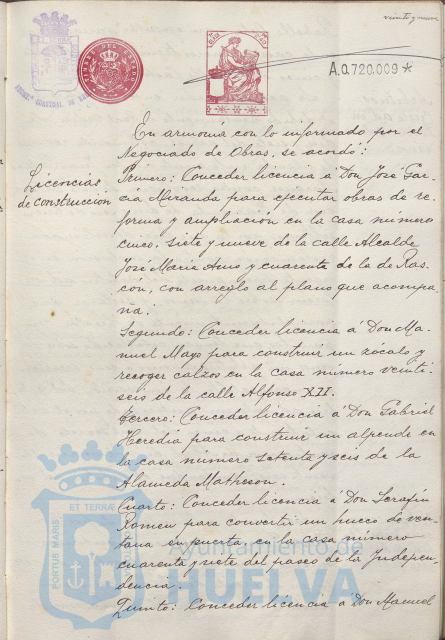 veinte y nueve
TIMBRE DEL ESTADO
A.0.720.009*
En armonía con lo informado por el
Negociado de Obras, se acordó:
Licencias
de construcción
Primero: Conceder licencia á Don José Gar-
cía Miranda para ejecutar obras de re-
forma y ampliación en la casa número
cinco, siete y nueve de la calle Alcalde
José María Amo y cuarenta de la de Ras-
cón, con arreglo al plano que acompa-
ña.
Segundo: Conceder licencia á Don Ma-
nuel Mayo para construir un zócalo y
recoger calzos en la casa número veinti-
seis de la calle Alfonso XII.
Tercero: Conceder licencia á Don Gabriel
Heredia para construir un alpende en
la casa número setenta y seis de la
Alameda Matheson.
Cuarto: Conceder licencia á Don Serafín
Romeu para convertir un hueco de ven-
tana en puerta, en la casa número
cuarenta y siete del paseo de la Indepen-
dencia.
Quinto: Conceder licencia á Don Manuel
PORTUS MARIS ET TERRÆ
Ayuntamiento de
HUELVA